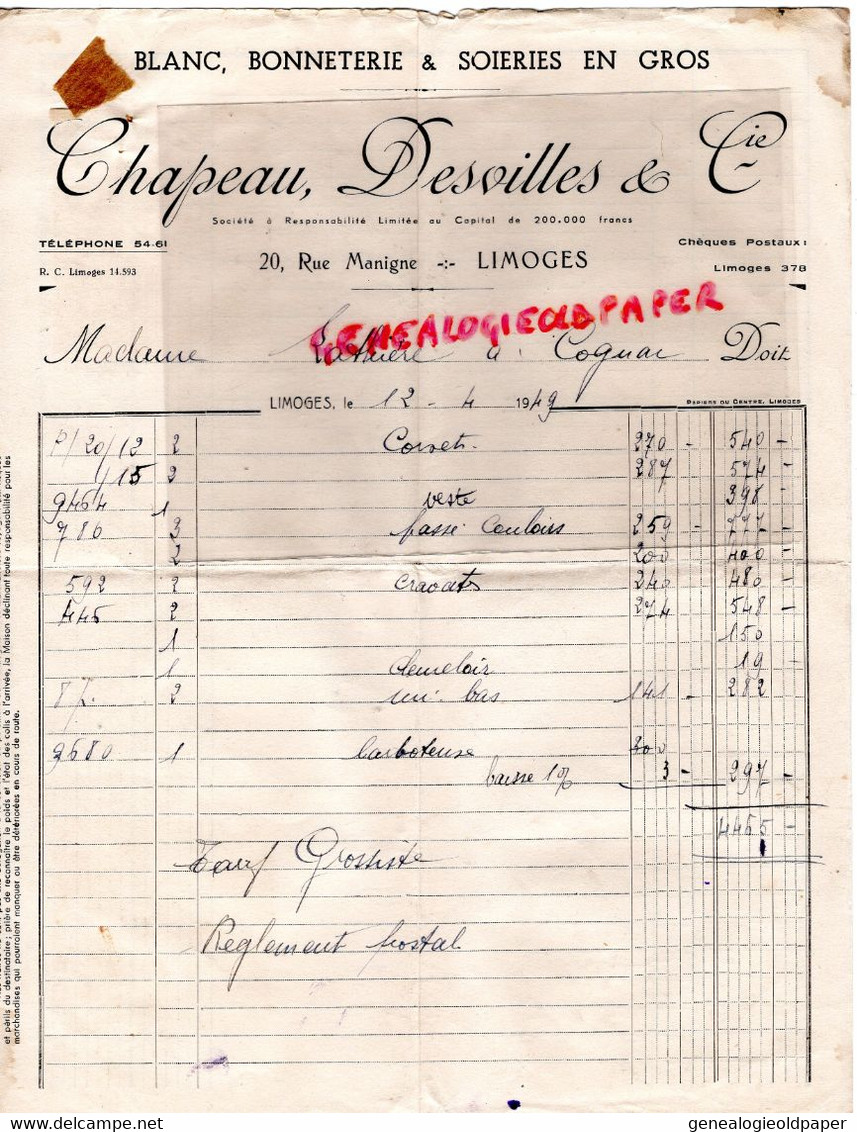 BLANC, BONNETERIE & SOIERIES EN GROS
Chapeau, Desvilles & Cie
Société à Responsabilité Limitée au Capital de 200.000 francs
TÉLÉPHONE 54-61
Chèques Postaux :
20, Rue Manigne -:- LIMOGES
R. C. Limoges 14.593
Limoges 378
GENEALOGIEOLDPAPER
Madame à Cognac Doit
LIMOGES, le 12 - 4 1949
PAPIERS DU CENTRE, LIMOGES
P/20/12 2 Corsets 270 - 540 -
1/15 2 287 574 -
9464 1 veste 398 -
786 3 passe Couloirs 259 - 777 -
2 200 400 -
592 2 cravats 240 480 -
445 2 274 548 -
1 150
1 demeloir 19 -
87. 2 mi-bas 141 - 282
9680 1 barboteuse 300
baisse 1% 3 - 297 -
4465 -
Tarif Grossiste
Reglement postal
et périls du destinataire ; prière de reconnaître le poids et l'état des colis à l'arrivée, la Maison déclinant toute responsabilité pour les
marchandises qui pourraient manquer ou être détériorées en cours de route.
genealogieoldpaper